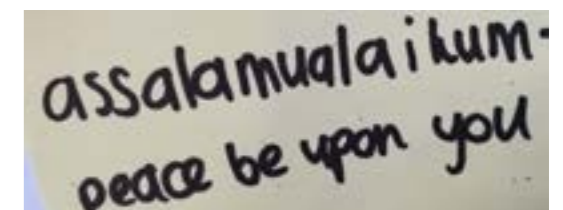 assalamualaikum-
peace be upon you